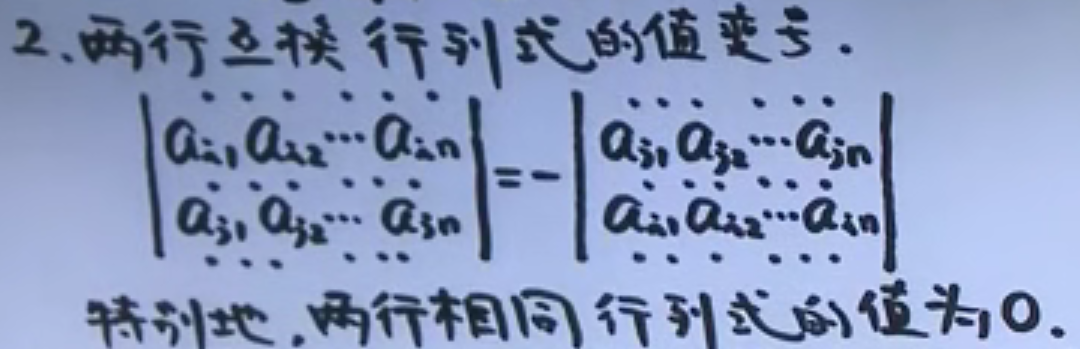 2、两行互换行列式的值变号.
··· ···
a_{i1} a_{i2} ··· a_{in}
··· ···
a_{j1} a_{j2} ··· a_{jn}
··· ···
=-
··· ···
a_{j1} a_{j2} ··· a_{jn}
··· ···
a_{i1} a_{i2} ··· a_{in}
··· ···
特别地,两行相同行列式的值为0.